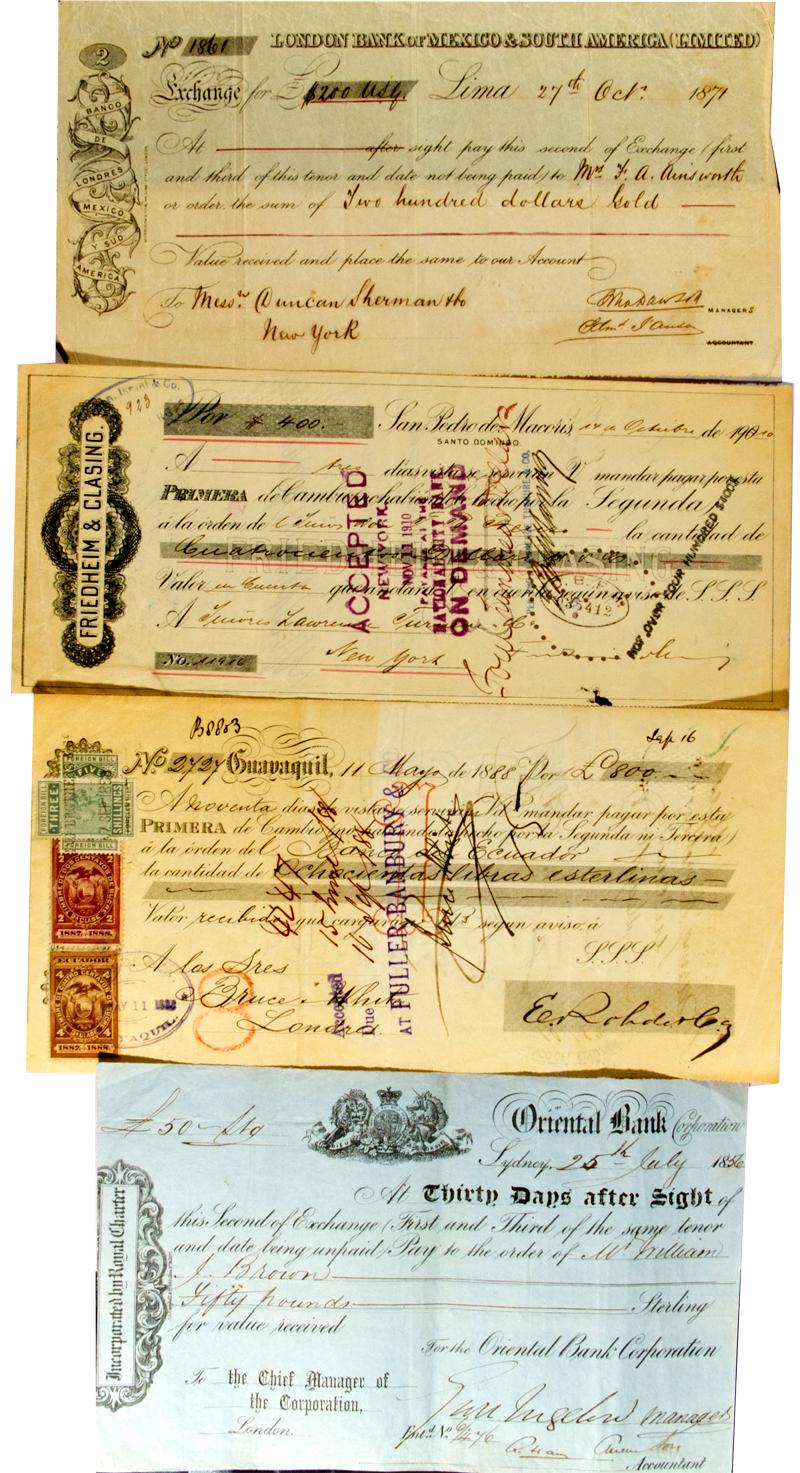 2
Nº 1861 LONDON BANK OF MEXICO & SOUTH AMERICA (LIMITED)
BANCO
DE
LONDRES
MEXICO
Y SUD
AMERICA
Exchange for £ $200 USg. Lima 27th Octr. 1871
At after sight pay this second of Exchange (first
and third of this tenor and date not being paid) to Mrs F. A. Ainsworth
or order, the sum of Two hundred dollars Gold
Value received and place the same to our Account
To Messrs. Duncan Sherman & Co
New York
MANAGERS
ACCOUNTANT.
FRIEDHEIM & CLASING.
923
Por $ 400.- San Pedro de Macoris 14 de Octubre de 1910
SANTO DOMINGO.
A dias vista se servirán V. mandar pagar por esta
PRIMERA de Cambio no habiendo hecho por la Segunda
á la órden de la cantidad de
Cuatrocientos
Valor en Cuenta que anotará en cuenta según aviso de S.S.S.
A Señores Lawrence Turnure & Co.
No. 11910 New York
ACCEPTED
NEW YORK
NOV 1910
PAYABLE AT THE
NATIONAL CITY BANK
ON DEMAND
NOT OVER FOUR HUNDRED $400$
B8803
Sep 16
Nº 2727 Guayaquil, 11 Mayo de 1888 Por £ 800.-
A noventa dias vista se servirán Vd. mandar pagar por esta
PRIMERA de Cambio (no habiendo hecho por la Segunda ni Tercera)
á la órden del Banco del Ecuador
la cantidad de Ochocientas libras esterlinas
Valor recibido que cargarán segun aviso á
S.S.S.
A los Sres
Bruce White
Londres.
E. Rohde & Co.
Accepted
Due
AT FULLER BANBURY &
FOREIGN BILL
FIVE
THREE
SHILLINGS
2 2
1887-1888.
ECUADOR
4 4
1887-1888.
MAY 11 1888
£ 50 - Stg
Oriental Bank Corporation
Sydney, 25th July 1856
At Thirty Days after Sight of
this Second of Exchange (First and Third of the same tenor
and date being unpaid) Pay to the order of Mr William
J. Brown
Fifty pounds Sterling
for value received
For the Oriental Bank Corporation
Incorporated by Royal Charter
To the Chief Manager of
the Corporation,
London.
Manager
Entd. No. 6/476
Accountant